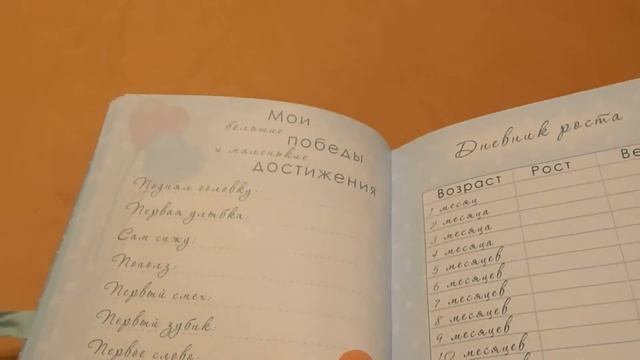 Мои
большие победы
и маленькие
достижения
Поднял головку:
Первая улыбка:
Сам сижу:
Пополз:
Первый смех:
Первый зубик:
Первое слово:
Дневник роста
Возраст Рост Ве
1 месяц
2 месяца
3 месяца
4 месяца
5 месяцев
6 месяцев
7 месяцев
8 месяцев
9 месяцев
10 месяцев